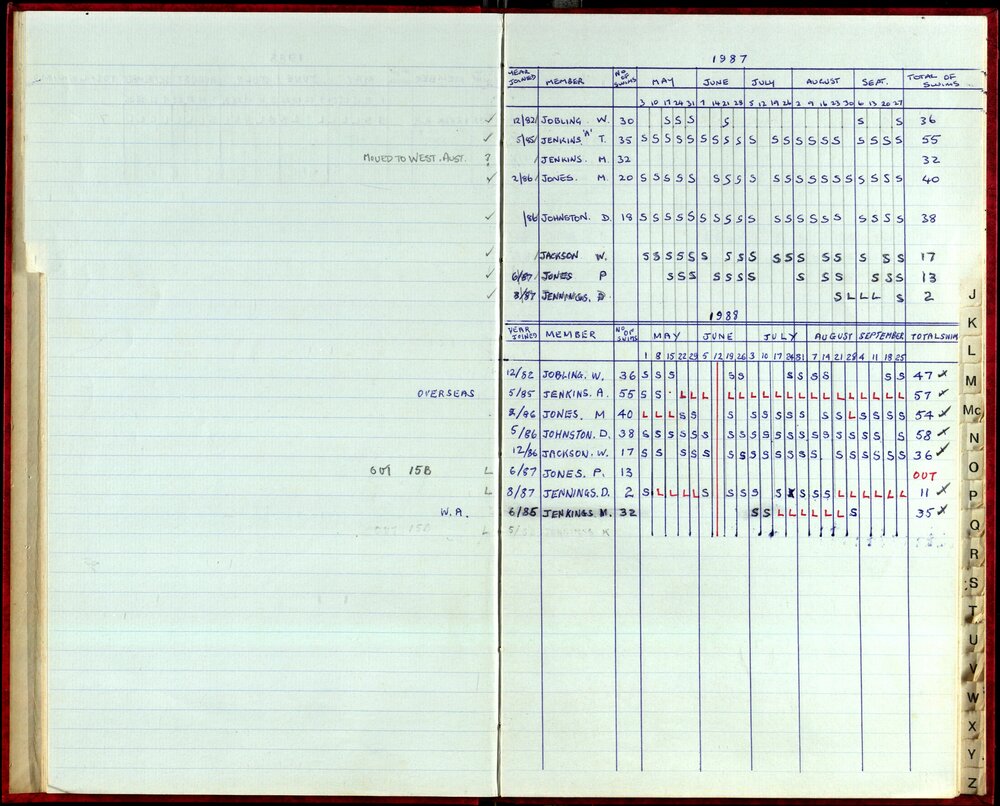 1987
YEAR JOINED MEMBER NO OF SWIMS MAY JUNE JULY AUGUST SEPT. TOTAL OF SWIMS
3 10 17 24 31 7 14 21 28 5 12 19 26 2 9 16 23 30 6 13 20 27
✓ 12/82 JOBLING. W. 30 S S S S S S 36
✓ 5/85 JENKINS "A" T. 35 S S S S S S S S S S S S S S S S S S S S S 55
MOVED TO WEST. AUST. ? / JENKINS. M. 32 32
✓ 2/86 JONES. M. 20 S S S S S S S S S S S S S S S S S S S S 40
✓ /86 JOHNSTON. D. 18 S S S S S S S S S S S S S S S S S S S 38
✓ / JACKSON W. S S S S S S S S S S S S S S S S S 17
✓ 6/87 JONES P S S S S S S S S S S S S S 13
✓ 8/87 JENNINGS. D S L L L S 2
1988
YEAR JOINED MEMBER NO OF SWIMS MAY JUNE JULY AUGUST SEPTEMBER TOTAL SWIM
1 8 15 22 29 5 12 19 26 3 10 17 24 31 7 14 21 28 4 11 18 25
12/82 JOBLING. W. 36 S S S S S S S S S S S 47
OVERSEAS 5/85 JENKINS. A. 55 S S L L L L L L L L L L L L L L L L L L 57
/86 JONES. M 40 L L L S S S S S S S S S S L S S S S 54
5/86 JOHNSTON. D. 38 S S S S S S S S S S S S S S S S S S S S 58
12/86 JACKSON. W. 17 S S S S S S S S S S S S S S S S S S S 36
OUT 15B L 6/87 JONES. P. 13 OUT
L 8/87 JENNINGS. D. 2 S L L L L S S S S S S S S L L L L L L 11
W.A. 6/85 JENKINGS M. 32 S S L L L L L L S 35
OUT 15B L
J
K
L
M
Mc
N
O
P
Q
R
S
T
U
V
W
X
Y
Z